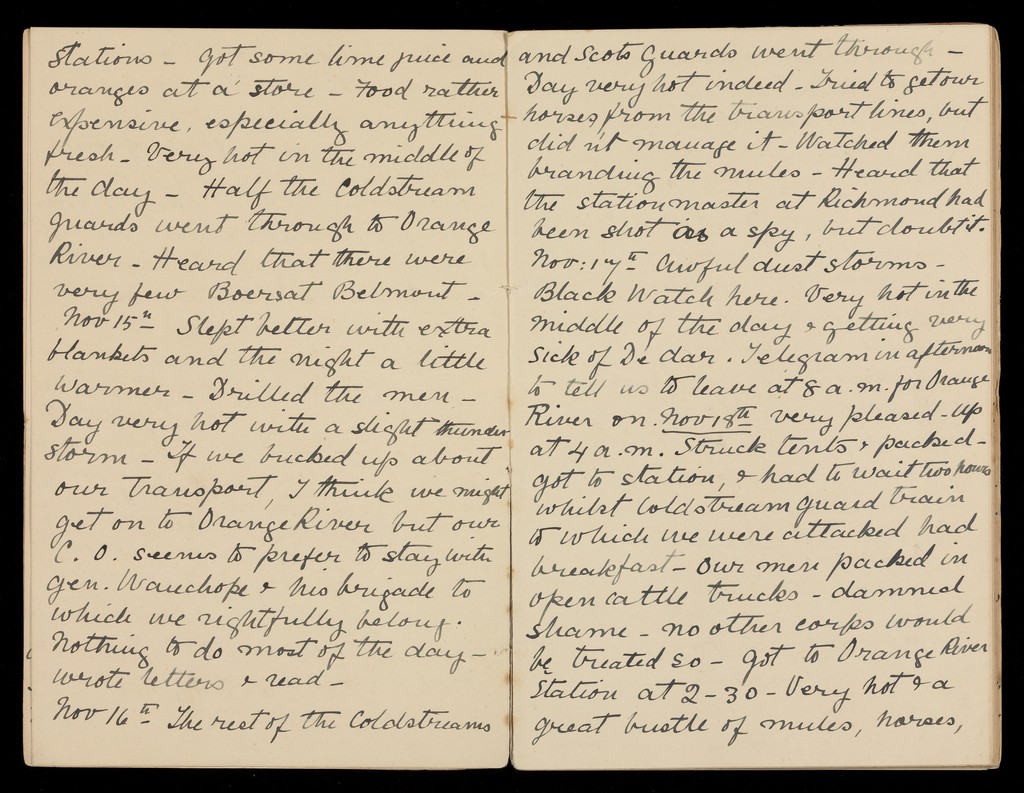 stations - Got some lime juice and
oranges at a store - Food rather
expensive, especially anything
fresh - Very hot in the middle of
the day - Half the Coldstream
Guards went through to Orange
River - Heard that there were
very few Boers at Belmont -
Nov 15th Slept better with extra
blankets and the night a little
warmer - Drilled the men -
Day very hot with a slight thunder
storm - If we bucked up about
our transport, I think we might
get on to Orange River but our
C. O. seems to prefer to stay with
Gen. Wauchope & his brigade to
which we rightfully belong.
Nothing to do most of the day -
wrote letters & read -
Nov 16th The rest of the Coldstreams
and Scots Guards went through -
Day very hot indeed - Tried to get our
horses from the transport lines, but
did n't manage it - Watched them
branding the mules - Heard that
the stationmaster at Richmond had
been shot as a spy, but doubt it.
Nov: 17th Awful dust storms -
Black Watch here. Very hot in the
middle of the day & getting very
sick of De dar. Telegram in afternoon
to tell us to leave at 8 a.m. for Orange
River on. Nov 18th very pleased - up
at 4 a.m. Struck tents & packed -
got to station, & had to wait two hours
whilst Coldstream Guard train
to which we were attacked had
breakfast - Our men packed in
open cattle trucks - damned
shame - no other corps would
be treated so - Got to Orange River
Station at 2-30 - Very hot & a
great bustle of mules, horses,